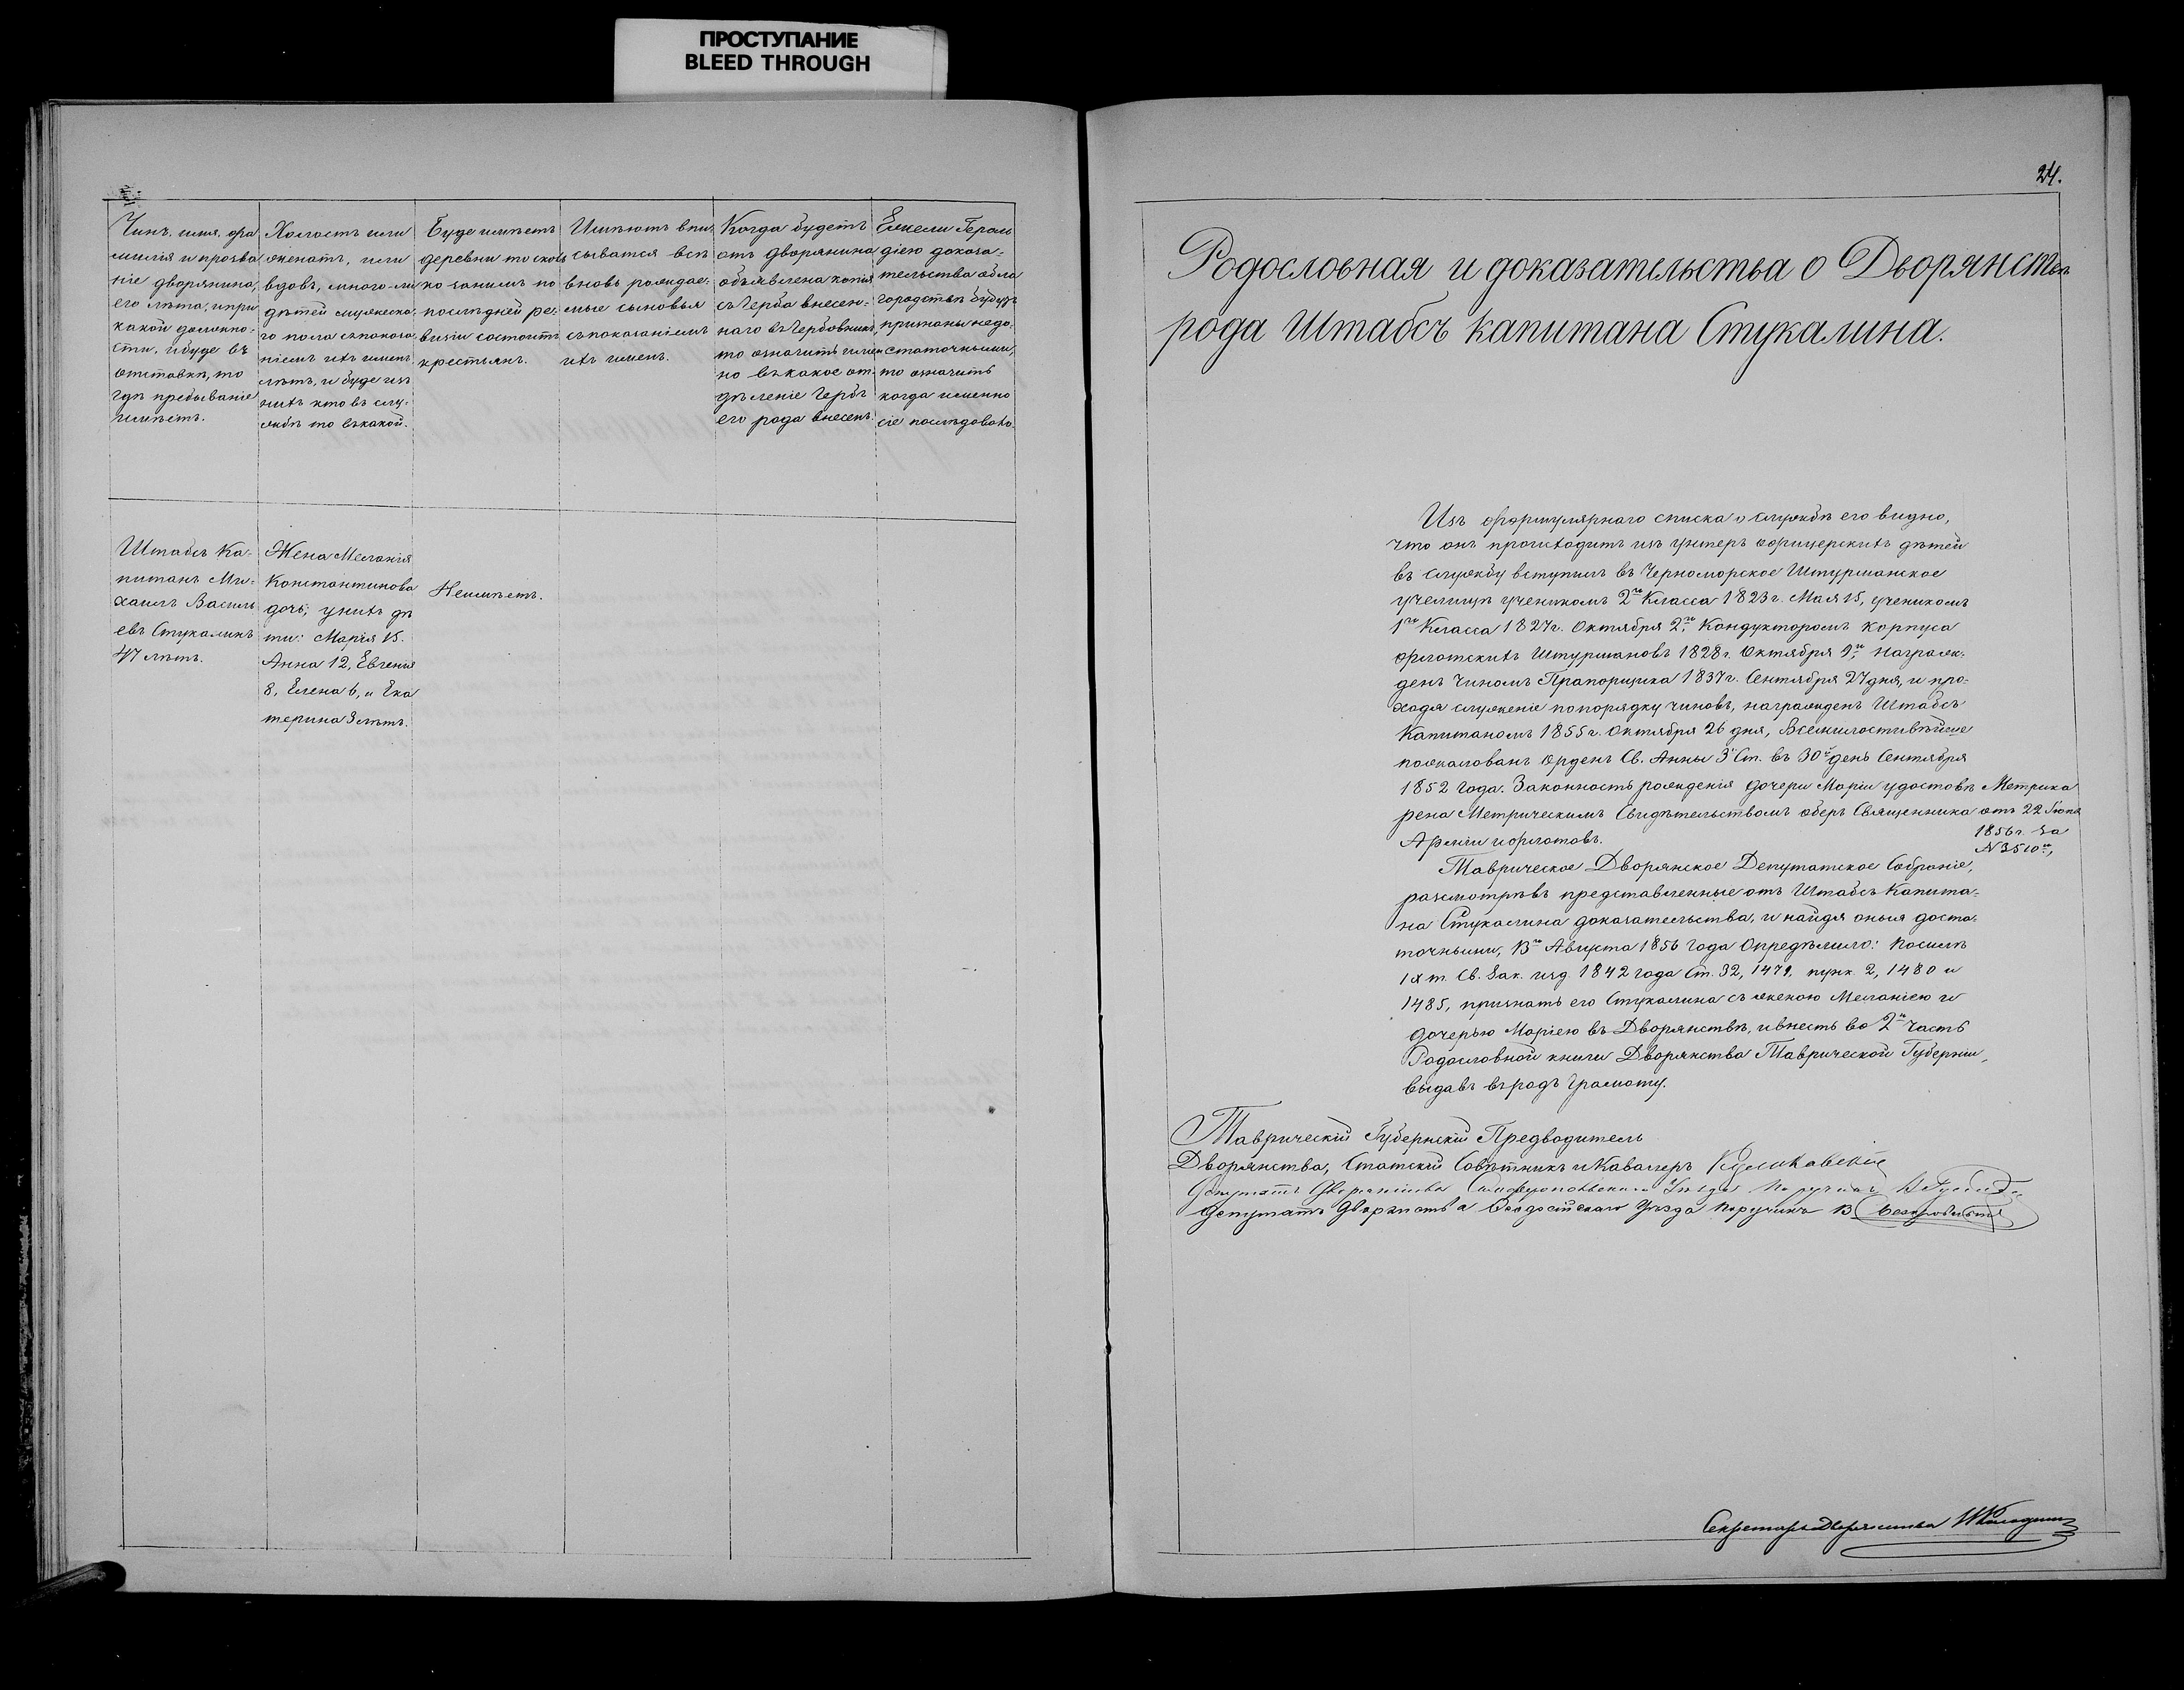 ПРОСТУПАНИЕ
BLEED THROUGH
Чинъ, имя, фа
милія и прозва
ніе дворянина,
его лѣта, и при
какой должно-
сти, и буде въ
отставкѣ, то
гдѣ пребываніе
имѣетъ.
Холостъ или
женатъ, или
вдовъ, много-ли
дѣтей мужеска-
го пола съ показа-
ніемъ ихъ именъ
лѣтъ, и буде изъ
нихъ кто въ слу-
жбѣ то въ какой.
Буде имѣетъ
деревни то сколь
ко за нимъ по
послѣдней ре-
визіи состоитъ
крестьянъ.
Имѣютъ впи
сыватся всѣ
вновь рождае-
мые сыновья
съ показаніемъ
ихъ именъ.
Когда будетъ
отъ дворянина
объявлена копія
съ Герба внесен-
наго въ Гербовникъ,
то означить имен
но въ какое от-
дѣленіе Гербъ
его рода внесенъ.
Ежели Герол
діею доказа-
тельства о бла
городствѣ будутъ
признаны недо-
статочными,
то означить
когда именно
сіе послѣдовало.
Штабсъ Ка-
питанъ Ми-
хаилъ Василь
евъ Стукалинъ
47 лѣтъ.
Жена Меланія
Константинова
дочь; у нихъ дѣ
ти: Марія 15.
Анна 12, Евгенія
8, Елена 6, и Ека
терина 3 лѣтъ.
Не имѣетъ.
24.
Родословная и доказательства о Дворянствѣ
рода Штабсъ капитана Стукалина.
Изъ формулярнаго списка о службѣ его видно,
что онъ происходитъ изъ унтеръ офицерскихъ дѣтей
въ службу вступилъ въ Черноморское Штурманское
училище ученикомъ 2го Класса 1823 г. Мая 15, ученикомъ
1го Класса 1827 г. Октября 2го, Кондукторомъ корпуса
флотскихъ Штурмановъ 1828 г. Октября 9го, награж-
денъ Чиномъ Прапорщика 1837 г. Сентября 27 дня, и про-
ходя служеніе по порядку чиновъ, награжденъ Штабсъ
Капитаномъ 1855 г. Октября 26 дня, Всемилостивѣйше
пожалованъ Орденъ Св. Анны 3й Ст. въ 30й день Сентября
1852 года. Законность рожденія дочери Маріи удостовѣ
рена Метрическимъ Свидѣтельствомъ оберъ Священника
Арміи и флотовъ.
Метрика
отъ 22 Іюня
1856 г. за
№ 3510м,
Таврическое Дворянское Депутатское Собраніе,
разсмотрѣвъ представленные отъ Штабсъ Капита-
на Стукалина доказательства, и найдя оныя доста-
точными, 13го Августа 1856 года Опредѣлило: По силѣ
IX т. Св. Зак. изд. 1842 года Ст. 32, 1479, пунк. 2, 1480 и
1485, признать его Стукалина съ женою Меланіею и
дочерью Маріею въ Дворянствѣ, и внесть во 2ю часть
Родословной книги Дворянства Таврической Губерніи,
выдавъ въ родъ Грамоту.
Таврическій Губернскій Предводитель
Дворянства, Статскій Совѣтникъ и Кавалеръ
Депутатъ Дворянства Симферопольскаго Уѣзда Поручикъ
Депутатъ Дворянства Феодосійскаго Уѣзда Поручикъ В
Секретарь Дворянства